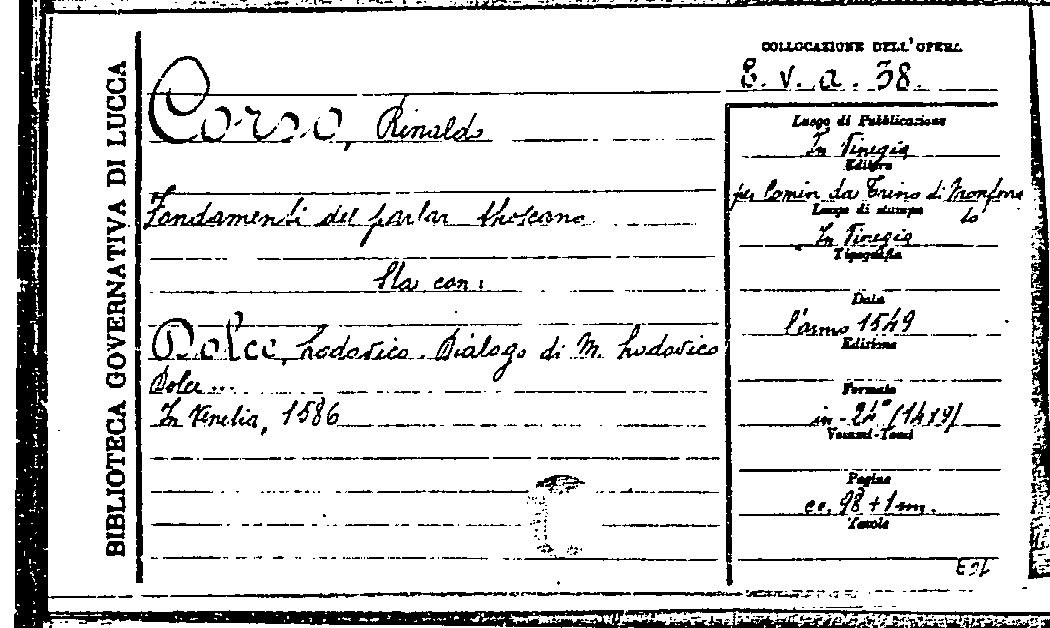 BIBLIOTECA GOVERNATIVA DI LUCCA
COLLOCAZIONE DELL'OPERA
E. v. a. 38.
Corso, Rinaldo
Fondamenti del parlar thoscano
Sta con:
Dolce, Lodovico. Dialogo di M. Lodovico
Dolce ...
In Venetia, 1586
Luogo di Pubblicazione
In Vinegia
Editore
per Comin da Trino di Monferra
to
Luogo di stampa
In Vinegia
Tipografia
Data
l'anno 1549
Edizione
Formato
in-24° (14x9)
Volumi-Tomi
Pagine
cc. 98 + 1 nn.
Tavole